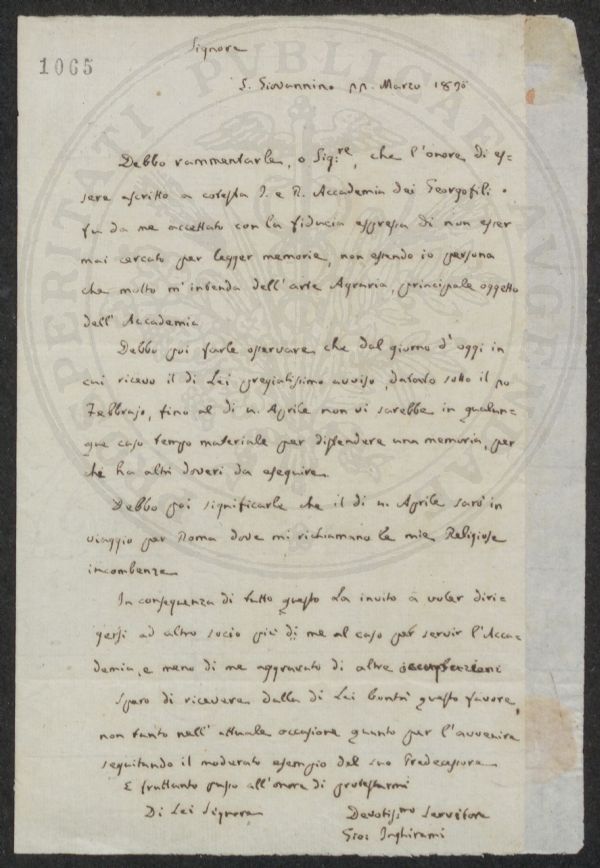 1065
PROSPERITATI PUBLICAE AUGENDAE
Signore
S. Giovannino 11. Marzo
Debbo rammentarle, o Sig:re, che l'onore di es=
sere ascritto a cotesta I. e R. Accademia dei Georgofili
fu da me accettato con la fiducia espressa di non esser
mai cercato per legger memorie, non essendo io persona
che molto m'intenda dell'arte Agraria, principale oggetto
dell'Accademia
Debbo poi farle osservare che dal giorno d'oggi in
cui ricevo il di Lei pregiatissimo avviso, datato sotto il
Febbrajo, fino al dì Aprile non vi sarebbe in qualun=
que caso tempo materiale per distendere una memoria, per
chè ha altri doveri da eseguire
Debbo poi significarle che il dì Aprile sarò in
viaggio per Roma dove mi richiamano le mie Religiose
incombenze
In conseguenza di tutto questo La invito a voler diri=
gersi ad altro socio più di me al caso per servir l'Acca=
demia, e meno di me aggravato di altre occupazioni
Spero di ricevere dalla di Lei bontà questo favore,
non tanto nell'attuale occasione quanto per l'avvenire
seguitando il moderato esempio del suo Predecessore
E frattanto passo all'onore di protestarmi
Di Lei Signore
Devotiss:mo Servitore
Gio: Inghirami